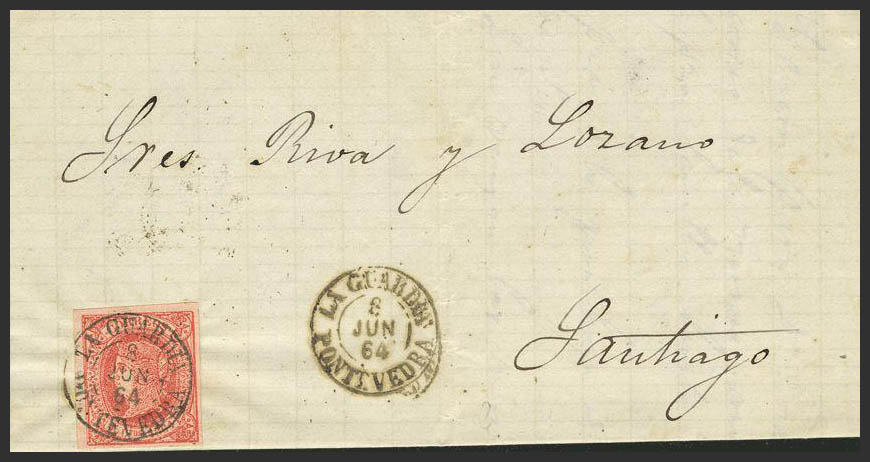 Sres Riva y Lozano
LA GUARDIA
8
JUN
64
PONTEVEDRA
Santiago
LA GUARDIA
8
JUN
64
PONTEVEDRA